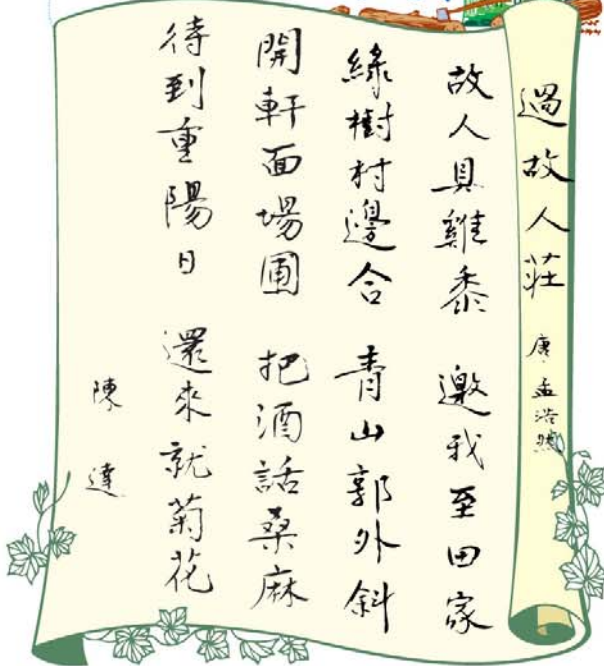 過故人莊 唐 孟浩然
故人具雞黍 邀我至田家
綠樹村邊合 青山郭外斜
開軒面場圃 把酒話桑麻
待到重陽日 還來就菊花
陳達